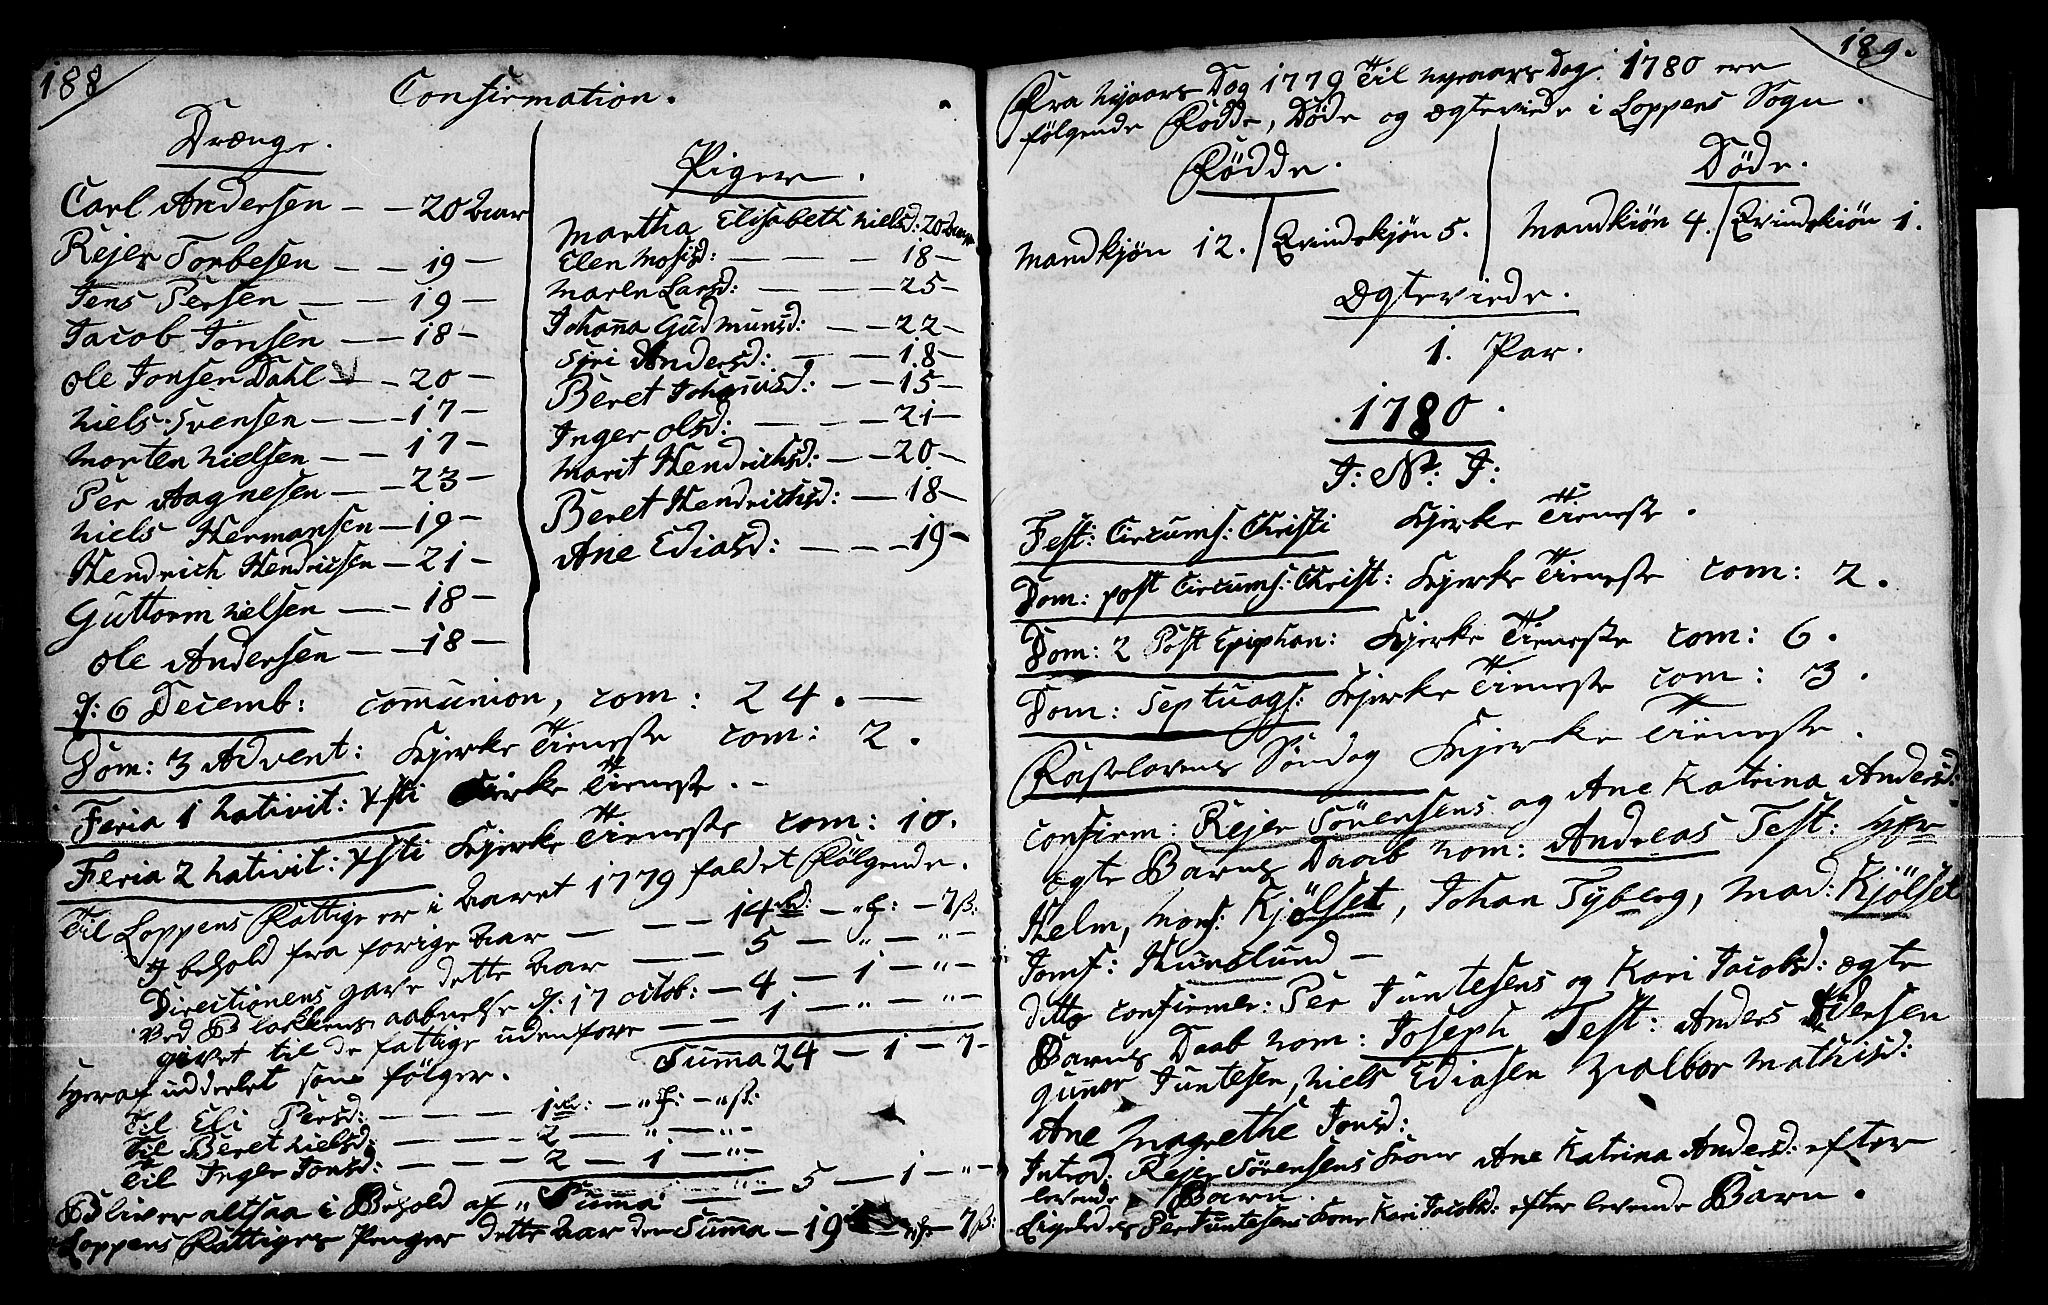 188
Confirmation.
Drænge.
Carl Andersen — — 20 Aar
Rejer Torbesen — — 19 —
Jens Persen — — 19 —
Jacob Jonsen — — 18 —
Ole Jonsen Dahl — — 20 —
Niels Svensen — — — 17 —
Morten Nielsen — — 17 —
Per Aagnesen — — 23 —
Niels Hermansen — 19 —
Hendrich Hendricsen — 21 —
Guttorm Nielsen — — 18 —
Ole Andersen — — 18 —
Piger.
Martha Elisabeth Nielsd: 20 Aar
Elen Mosisd: — — — — 18 —
Maren Larsd: — — — — 25 —
Johanna Gudmunsd: — — 22 —
Siri Andersd: — — — 18 —
Beret Johannsd: — — 15 —
Inger Olsd: — — — — 21 —
Marit Hendrichsd: — — 20 —
Beret Hendrichsd: — 18 —
Ane Ediasd: — — — 19 —
d: 6 Decemb: communion, com: 24. —
Dom: 3 Advent: Kjerke Tieneste com: 2.
Feria 1 Nativit: Xsti Kirke Tieneste. —
Feria 2 Nativit: Xsti Kjerke Tieneste com: 10.
Til Loppens Fattige er i Aaret 1779 faldet Følgende.
I behold fra forige Aar — — — 14 rd: — " — 7 ß:
Directionens gave dette Aar — — 5 — " — " —
Ved Blokkens aabnelse d: 17 octob: — 4 — 1 — " —
givet til de fattige udenfore — — 1 — " — " —
Summa 24 — 1 — 7 —
Heraf uddeelet som følger.
Til Eli Persd: — — — — 1 rd: — " — " ß:
Til Beret Nielsd: — — — 2 — " — " —
Til Inger Jonsd: — — — 2 — 1 — " —
Bliver altsaa i Behold af " Summa — " — 5 — 1 — " —
Loppens Fattiges Penger dette Aar den Summa — 19 — 7 ß:
189.
Fra Nyaars Dag 1779 Til Nyeaars Dag 1780 ere
følgende Fødde, Døde og Ægteviede i Loppens Sogn.
Fødde.
Mandkjøn 12. / Qvindekjøn 5.
Døde.
Mandkiøn 4. / Qvindekiøn 1.
Ægteviede.
1. Par.
1780.
I: N: J:
Fest: Circums: Christi Kjerke Tieneste.
Dom: post Circums: Christ: Kjerke Tieneste com: 2.
Dom: 2 Post Epiphan: Kjerke Tieneste com: 6.
Dom: Septuags: Kjerke Tieneste com: 3.
Fastelavens Søndag Kjerke Tieneste.
confirm: Rejer Sørensens og Ane Katrina Andersd:
ægte Barns Daab Nom: Andreas Test: Hr
Helm, Mons: Kjølset, Johan Tyberg, Mad: Kjølset
Jomf: Hunslund —
ditto confirmer: Per Juntesens og Kari Jacobsd: ægte
Barns Daab nom: Joseph Test: Anders Idersen
Gunnor Juntesen, Niels Ediasen Valbor Mathisd:
Ane Magrethe Jonsd:
Introd. Rejer Sørensens Kone Ane Katrina Andersd: efter
levende Barn.
Ligeledes Per Juntesens Kone Kari Jacobsd: efter levende Barn.